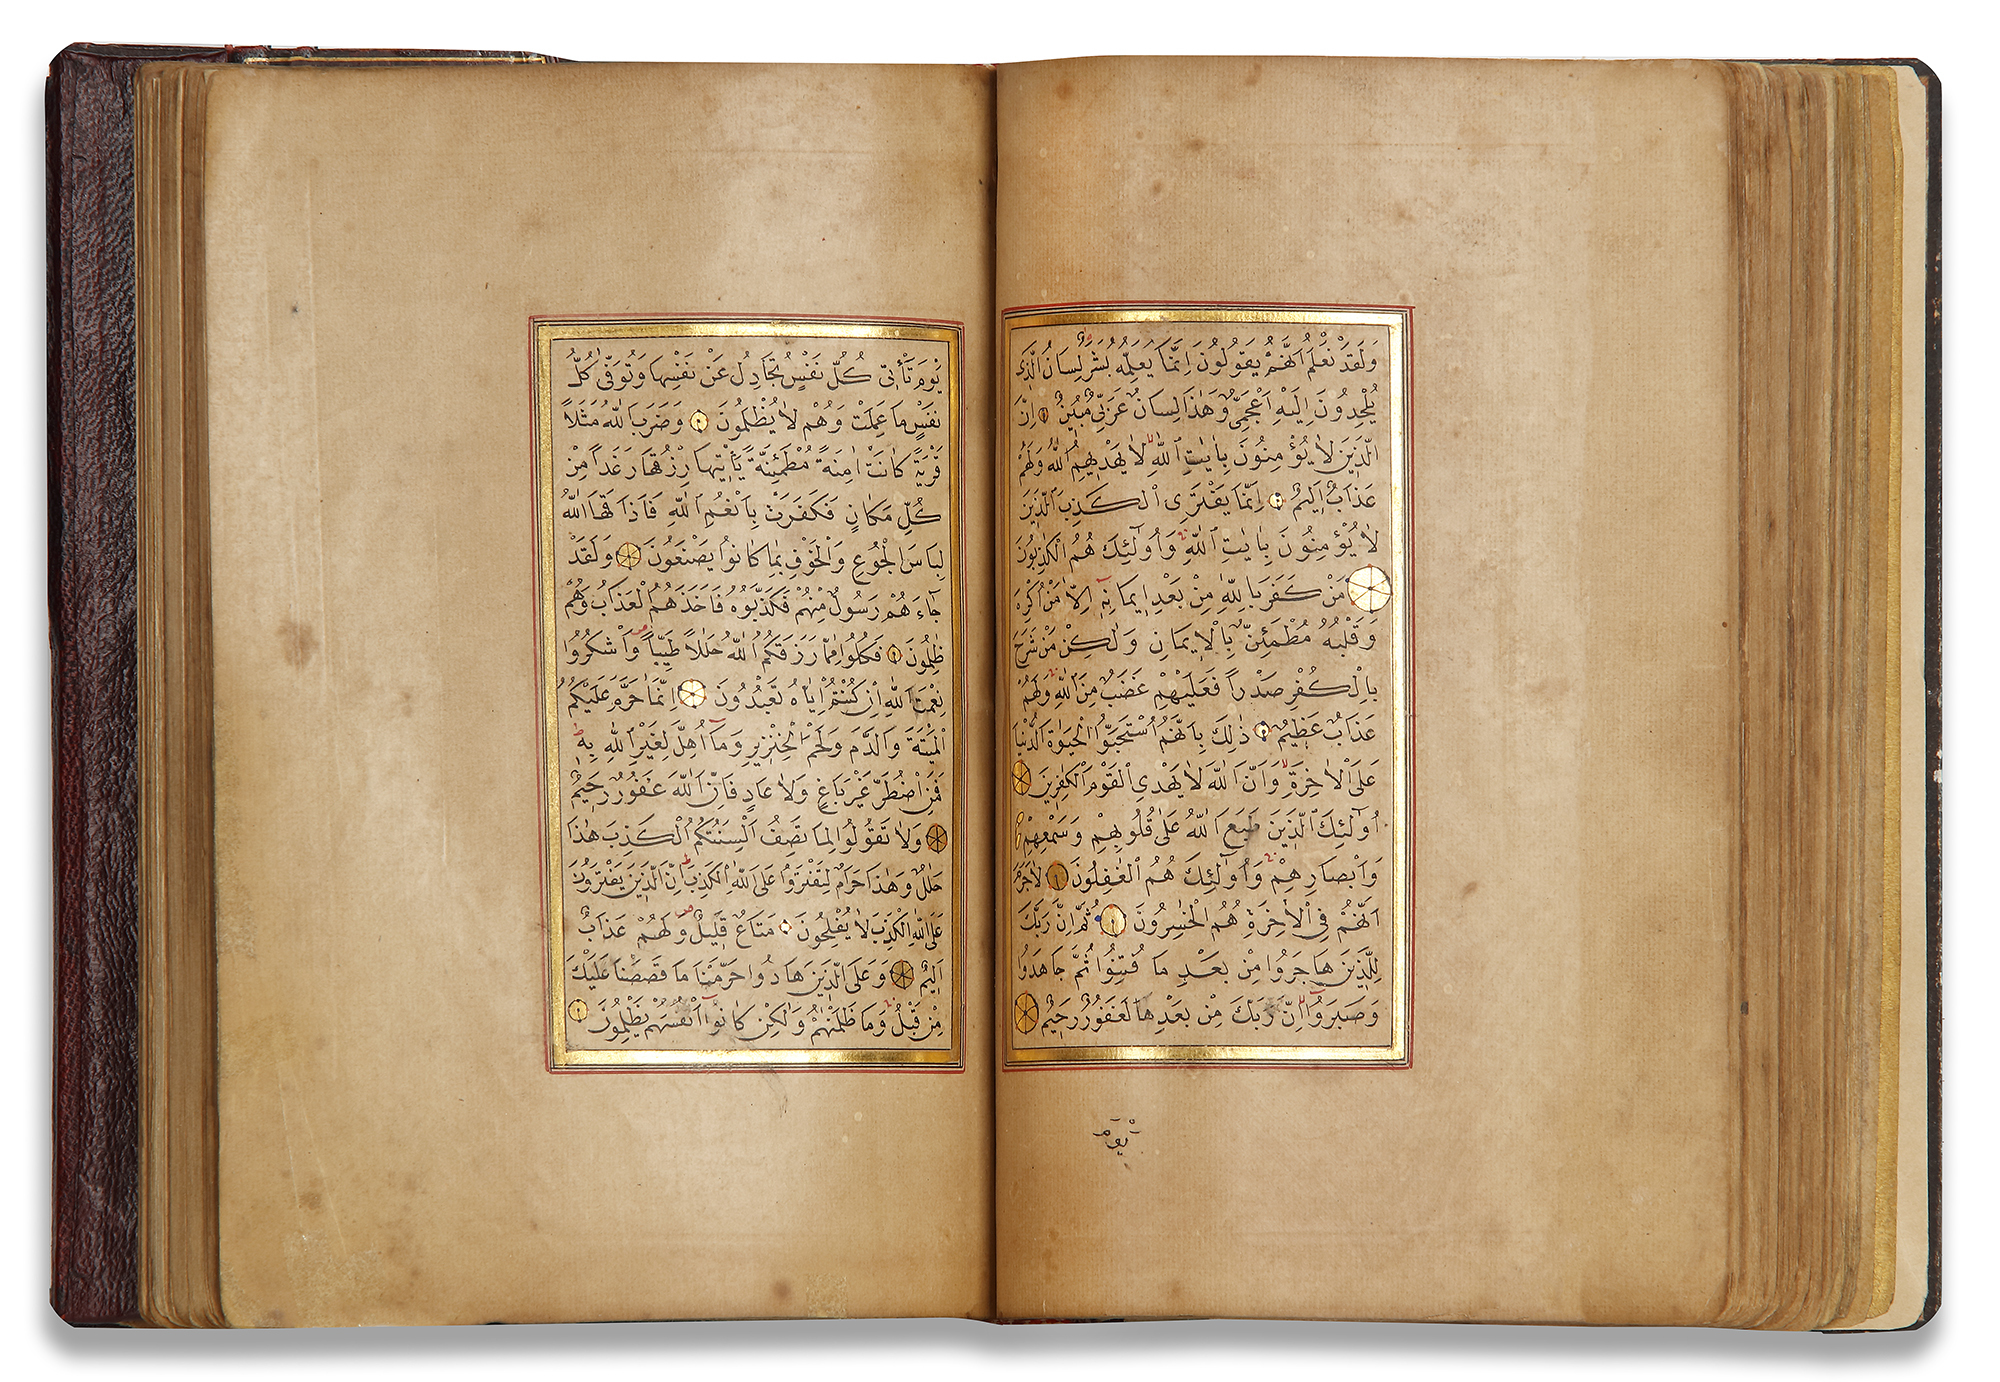 وَلَقَدْ نَعْلَمُ اَنَّهُمْ يَقُولُونَ اِنَّمَا يُعَلِّمُهُ بَشَرٌ لِسَانُ الَّذِي
يُلْحِدُونَ اِلَيْهِ اَعْجَمِيٌّ وَهٰذَا لِسَانٌ عَرَبِيٌّ مُبِينٌ اِنَّ
الَّذِينَ لَا يُؤْمِنُونَ بِاٰيَاتِ اللّٰهِ لَا يَهْدِيهِمُ اللّٰهُ وَلَهُمْ
عَذَابٌ اَلِيمٌ اِنَّمَا يَفْتَرِى الْكَذِبَ الَّذِينَ
لَا يُؤْمِنُونَ بِاٰيَاتِ اللّٰهِ وَاُولٰٓئِكَ هُمُ الْكَاذِبُونَ
مَنْ كَفَرَ بِاللّٰهِ مِنْ بَعْدِ اِيمَانِهِ اِلَّا مَنْ اُكْرِهَ
وَقَلْبُهُ مُطْمَئِنٌّ بِالْاِيمَانِ وَلٰكِنْ مَنْ شَرَحَ
بِالْكُفْرِ صَدْراً فَعَلَيْهِمْ غَضَبٌ مِنَ اللّٰهِ وَلَهُمْ
عَذَابٌ عَظِيمٌ ذٰلِكَ بِاَنَّهُمُ اسْتَحَبُّوا الْحَيٰوةَ الدُّنْيَا
عَلَى الْاٰخِرَةِ وَاَنَّ اللّٰهَ لَا يَهْدِي الْقَوْمَ الْكَافِرِينَ
اُولٰٓئِكَ الَّذِينَ طَبَعَ اللّٰهُ عَلٰى قُلُوبِهِمْ وَسَمْعِهِمْ
وَاَبْصَارِهِمْ وَاُولٰٓئِكَ هُمُ الْغَافِلُونَ لَاجَرَمَ
اَنَّهُمْ فِي الْاٰخِرَةِ هُمُ الْخَاسِرُونَ ثُمَّ اِنَّ رَبَّكَ
لِلَّذِينَ هَاجَرُوا مِنْ بَعْدِ مَا فُتِنُوا ثُمَّ جَاهَدُوا
وَصَبَرُوا اِنَّ رَبَّكَ مِنْ بَعْدِهَا لَغَفُورٌ رَحِيمٌ
يَوْمَ
يَوْمَ تَأْتِي كُلُّ نَفْسٍ تُجَادِلُ عَنْ نَفْسِهَا وَتُوَفّٰى كُلُّ
نَفْسٍ مَا عَمِلَتْ وَهُمْ لَا يُظْلَمُونَ وَضَرَبَ اللّٰهُ مَثَلاً
قَرْيَةً كَانَتْ اٰمِنَةً مُطْمَئِنَّةً يَأْتِيهَا رِزْقُهَا رَغَداً مِنْ
كُلِّ مَكَانٍ فَكَفَرَتْ بِاَنْعُمِ اللّٰهِ فَاَذَاقَهَا اللّٰهُ
لِبَاسَ الْجُوعِ وَالْخَوْفِ بِمَا كَانُوا يَصْنَعُونَ وَلَقَدْ
جَاءَهُمْ رَسُولٌ مِنْهُمْ فَكَذَّبُوهُ فَاَخَذَهُمُ الْعَذَابُ وَهُمْ
ظَالِمُونَ فَكُلُوا مِمَّا رَزَقَكُمُ اللّٰهُ حَلَالاً طَيِّباً وَاشْكُرُوا
نِعْمَتَ اللّٰهِ اِنْ كُنْتُمْ اِيَّاهُ تَعْبُدُونَ اِنَّمَا حَرَّمَ عَلَيْكُمُ
الْمَيْتَةَ وَالدَّمَ وَلَحْمَ الْخِنْزِيرِ وَمَا اُهِلَّ لِغَيْرِ اللّٰهِ بِهِ
فَمَنِ اضْطُرَّ غَيْرَ بَاغٍ وَلَا عَادٍ فَاِنَّ اللّٰهَ غَفُورٌ رَحِيمٌ
وَلَا تَقُولُوا لِمَا تَصِفُ اَلْسِنَتُكُمُ الْكَذِبَ هٰذَا
حَلَالٌ وَهٰذَا حَرَامٌ لِتَفْتَرُوا عَلَى اللّٰهِ الْكَذِبَ اِنَّ الَّذِينَ يَفْتَرُونَ
عَلَى اللّٰهِ الْكَذِبَ لَا يُفْلِحُونَ مَتَاعٌ قَلِيلٌ وَلَهُمْ عَذَابٌ
اَلِيمٌ وَعَلَى الَّذِينَ هَادُوا حَرَّمْنَا مَا قَصَصْنَا عَلَيْكَ
مِنْ قَبْلُ وَمَا ظَلَمْنَاهُمْ وَلٰكِنْ كَانُوا اَنْفُسَهُمْ يَظْلِمُونَ